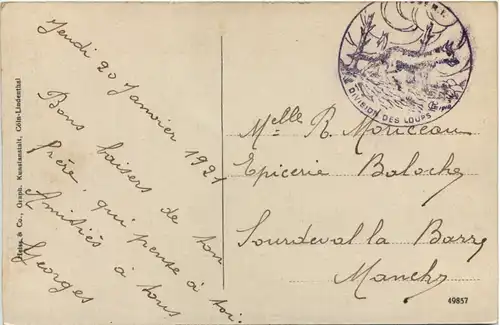 Jeudi 20 Janvier 1921
Bons baisers de ton
frère, qui pense à toi.
Amitiés à tous
Georges
Melle R. Moriceau
Epicerie Baloche
Sourdeval la Barre
Manche
DIVISION DES LOUPS
& Co., Graph. Kunstanstalt, Cöln-Lindenthal
49857